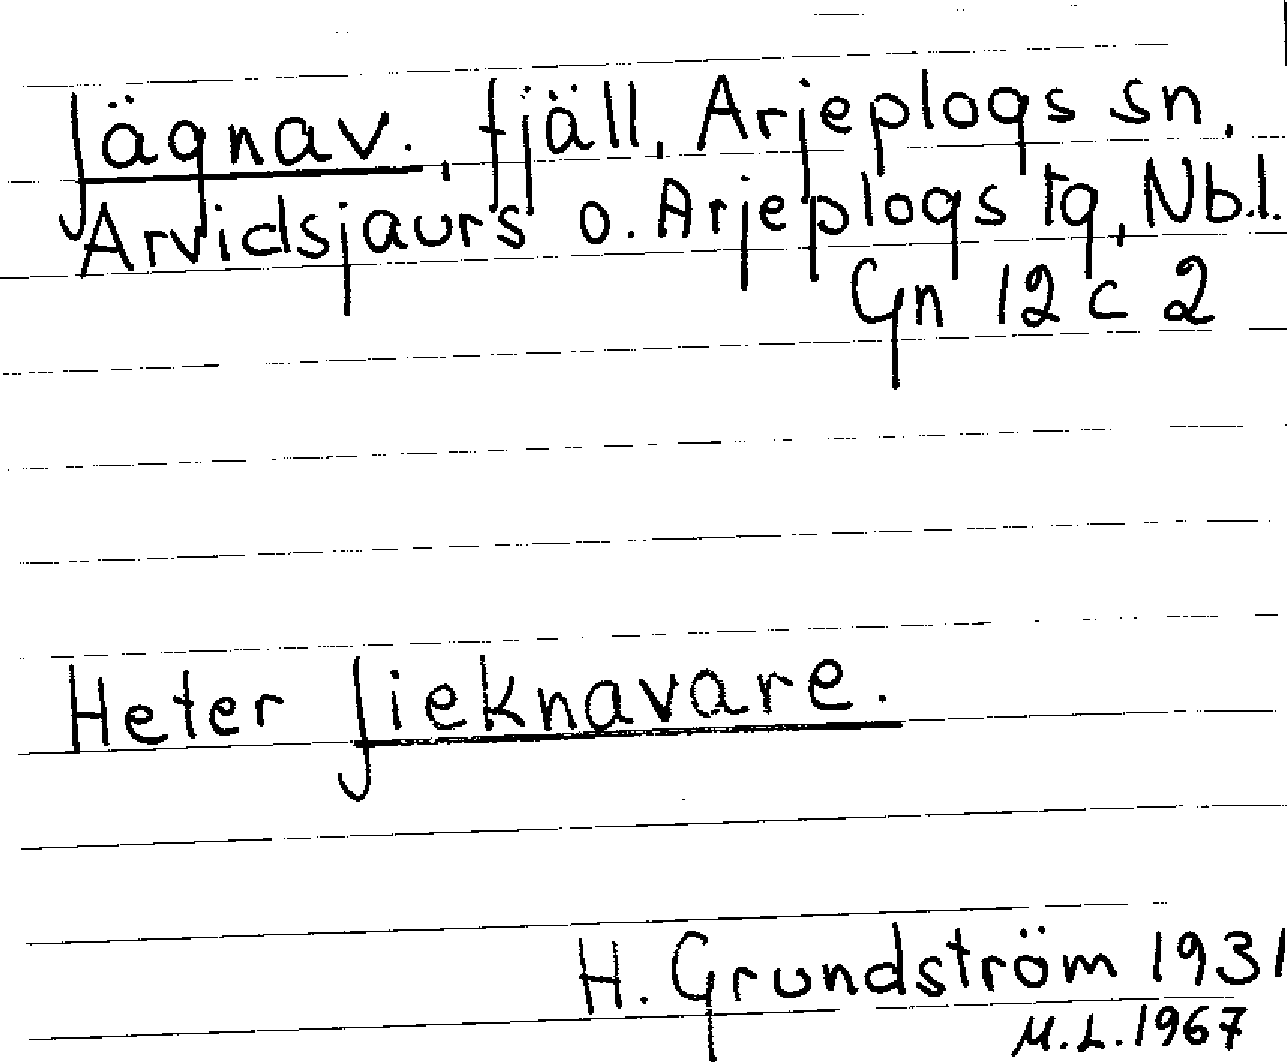 Jägnav., fjäll, Arjeplogs sn,
Arvidsjaurs o. Arjeplogs tg, Nb.l.
Gn 12 c 2
Heter Jieknavare.
H. Grundström 1931
M.L. 1967